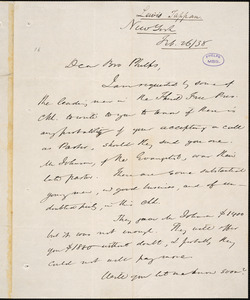 Lewis Tappan
New York
Feb. 26/38
Dear Bro Phelps,
I am requested by some of
the leading men in the Third Free Pres.
Ch. to write to you to know if there is
any probability of you accepting a call
as Pastor, should they send you one.
Mr Johnson, of the Evangelist, was their
late pastor. There are some substantial
young men, in good business, and of
piety, in this Ch.
They gave Mr Johnson $1400
but it was not enough. They will offer
you $1800 without doubt, & probably they
could not well pay more.
Will you let me know soon?